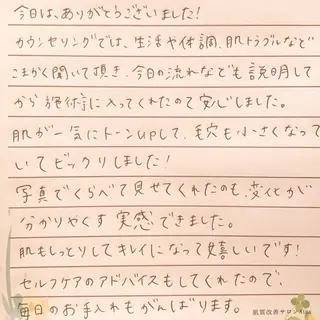 今日は、ありがとうございました!
カウンセリングでは、生活や体調、肌トラブルなど
こまかく聞いて頂き、今日の流れなども説明して
から施術に入ってくれたので安心しました。
肌が一気にトーンupして、毛穴も小さくなって
いてビックリしました!
写真でくらべて見せてくれたのも、変化が
分かりやすく実感できました。
肌もしっとりしてキレイになって嬉しいです!
セルフケアのアドバイスもしてくれたので、
毎日のお手入れもがんばります。
肌質改善サロン